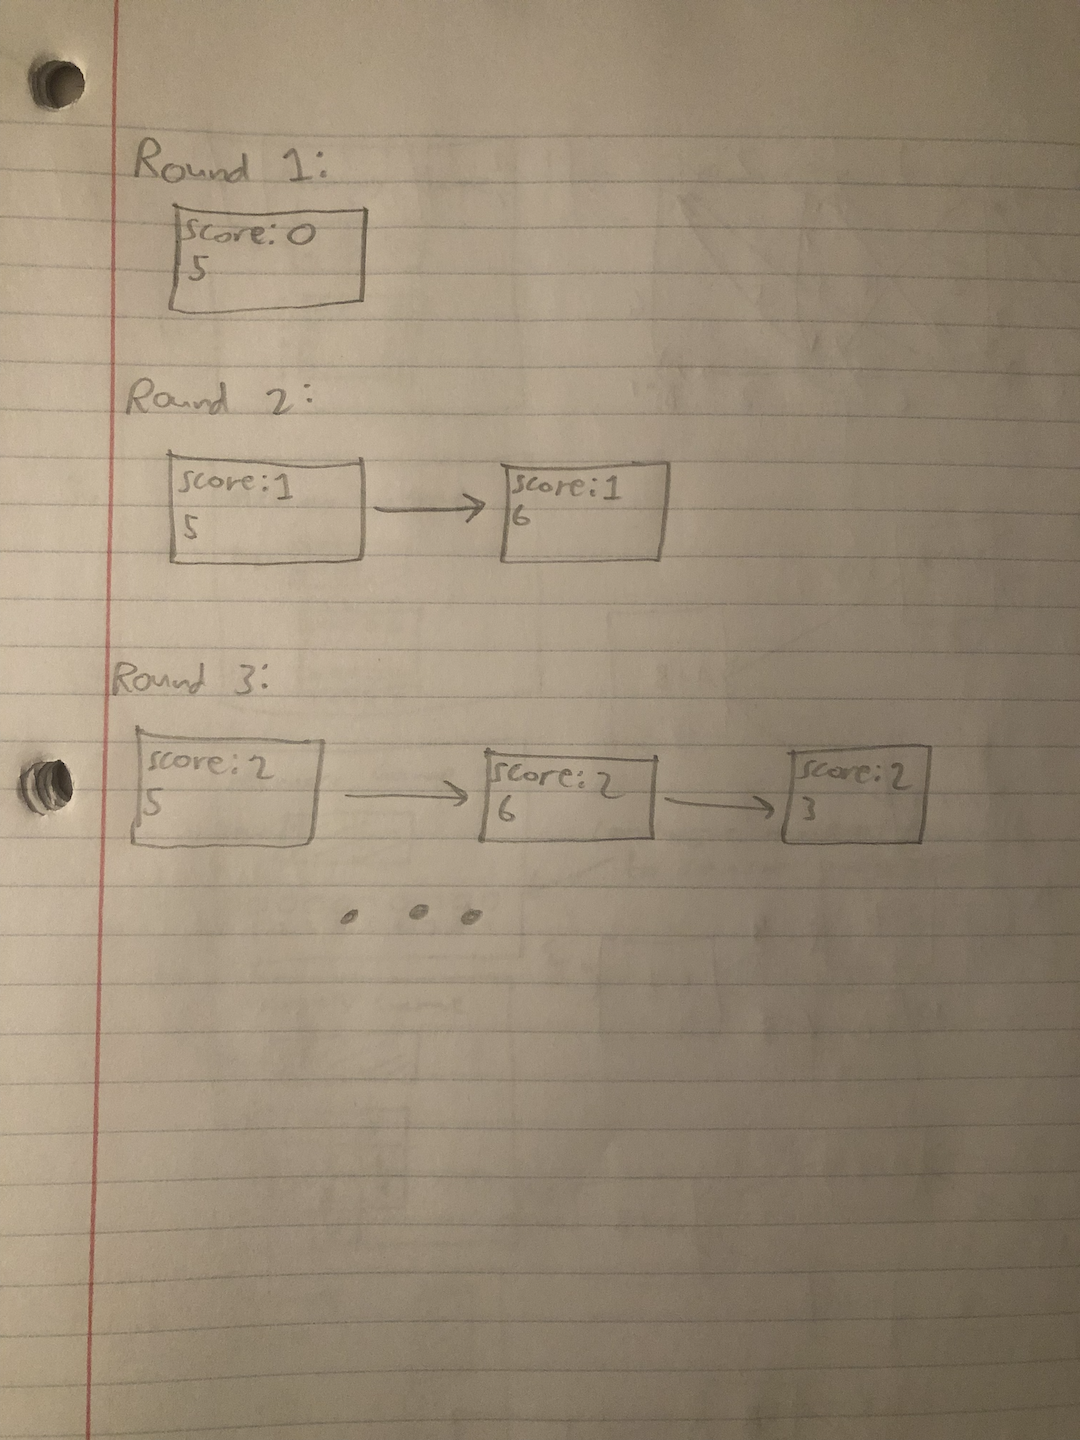 Round 1:
score: 0
5
Round 2:
score: 1
5
score: 1
6
Round 3:
score: 2
5
score: 2
6
score: 2
3
• • •